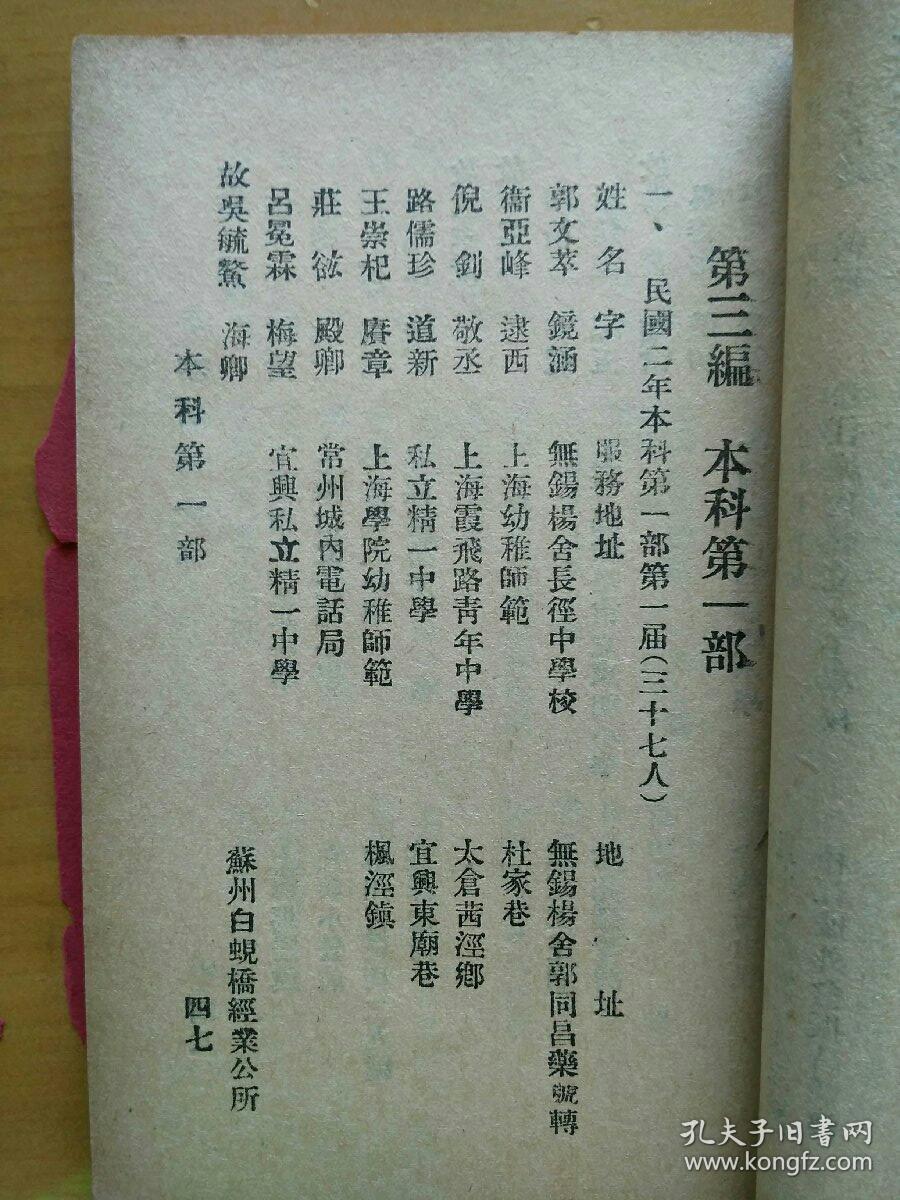 第三編　本科第一部
一、　民國二年本科第一部第一届（三十七人）
姓名　字　服務地址　地址
郭文萃　鏡涵　無錫楊舍長徑中學校　無錫楊舍郭同昌藥號轉
衞亞峰　逮西　上海幼稚師範　杜家巷
倪釗　敬丞　上海霞飛路靑年中學　太倉茜涇鄕
路儒珍　道新　私立精一中學　宜興東廟巷
王崇杞　賡章　上海學院幼稚師範　楓涇鎭
莊　殿卿　常州城內電話局
呂冕霖　梅望　宜興私立精一中學
故吳毓鰲　海卿　蘇州白蜆橋經業公所
本科第一部　四七
孔夫子旧书网
www.kongfz.com